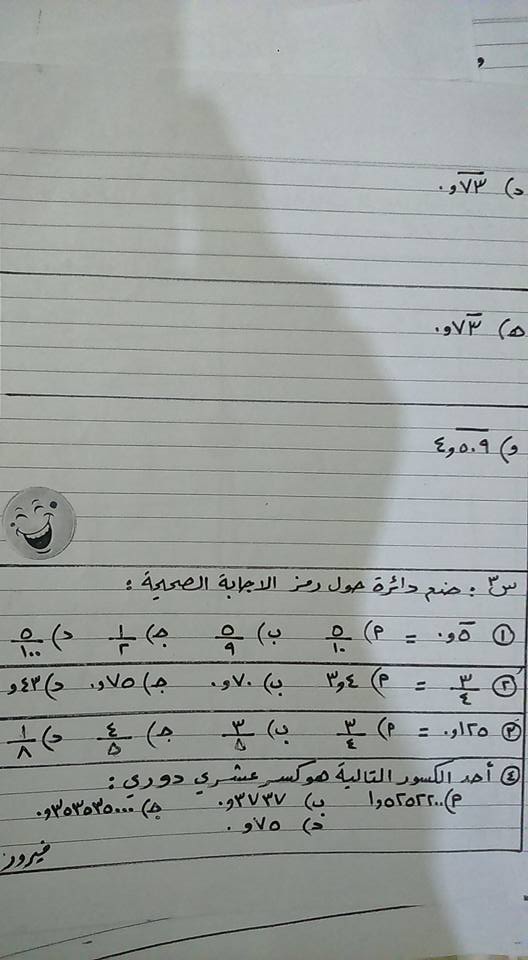 و
د) ٠,٧٣
هـ) ٠,٧٣
و) ٤,٥٠٩
س٣ : ضع دائرة حول رمز الاجابة الصحيحة :
① ٠,٥ = أ) ٥/١٠ ب) ٥/٩ جـ) ١/٢ د) ٥/١٠٠
② ٣/٤ = أ) ٣,٤ ب) ٠,٧٠ جـ) ٠,٧٥ د) ٤٣,
③ ٠,١٢٥ = أ) ٣/٤ ب) ٣/٥ جـ) ٤/٥ د) ١/٨
④ أحد الكسور التالية هو كسر عشري دوري :
أ) ١,٥٢٥٢٢٠٠ ب) ٠,٣٧٣٧ جـ) ٠,٣٥٣٥٣٥٠٠٠
د) ٠,٧٥
فيروز